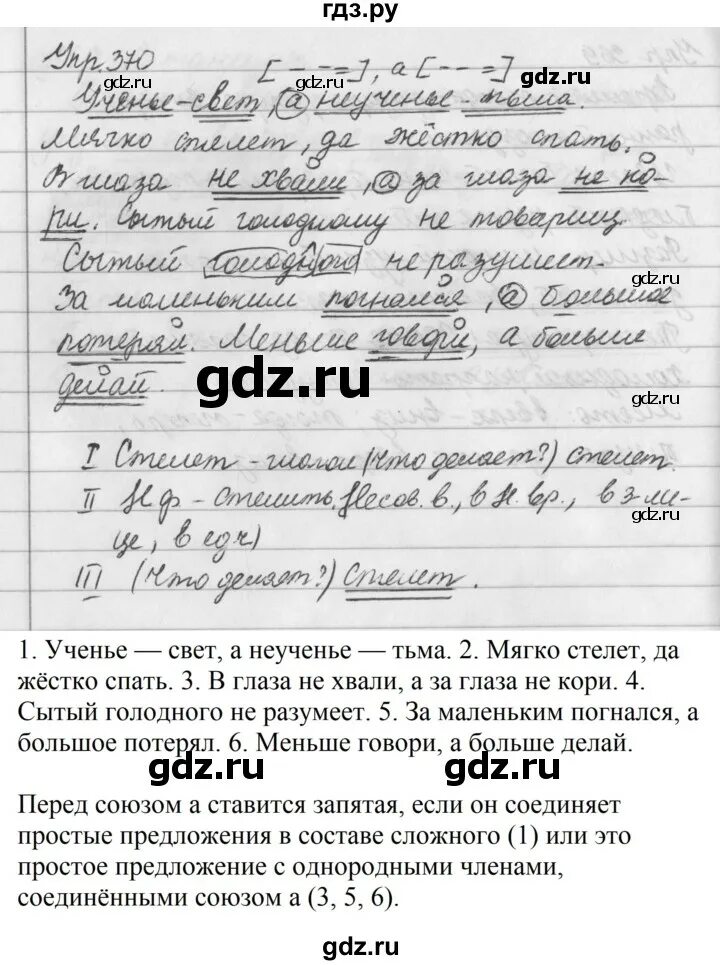 гдз.ру
Упр. 370 [- - -=], а [- - -=]
Ученье-свет, а неученье-тьма.
Мягко стелет, да жёстко спать.
В глаза не хвали, а за глаза не ко-
ри. Сытый голодному не товарищ
Сытый голодного не разумеет.
За маленьким погнался, а большое
потерял. Меньше говори, а больше
делай.
gdz.ru
I Стелет - глагол (Что делает?) стелет.
II Н.ф - стелить, Несов. в., в Н. вр., в 3-ли-
це, в ед.ч)
III (Что делает?) Стелет.
1. Ученье — свет, а неученье — тьма. 2. Мягко стелет, да
жёстко спать. 3. В глаза не хвали, а за глаза не кори. 4.
Сытый голодного не разумеет. 5. За маленьким погнался, а
большое потерял. 6. Меньше говори, а больше делай.
gdz.ru gdz.ru
Перед союзом а ставится запятая, если он соединяет
простые предложения в составе сложного (1) или это
простое предложение с однородными членами,
соединёнными союзом а (3, 5, 6).
gdz.ru